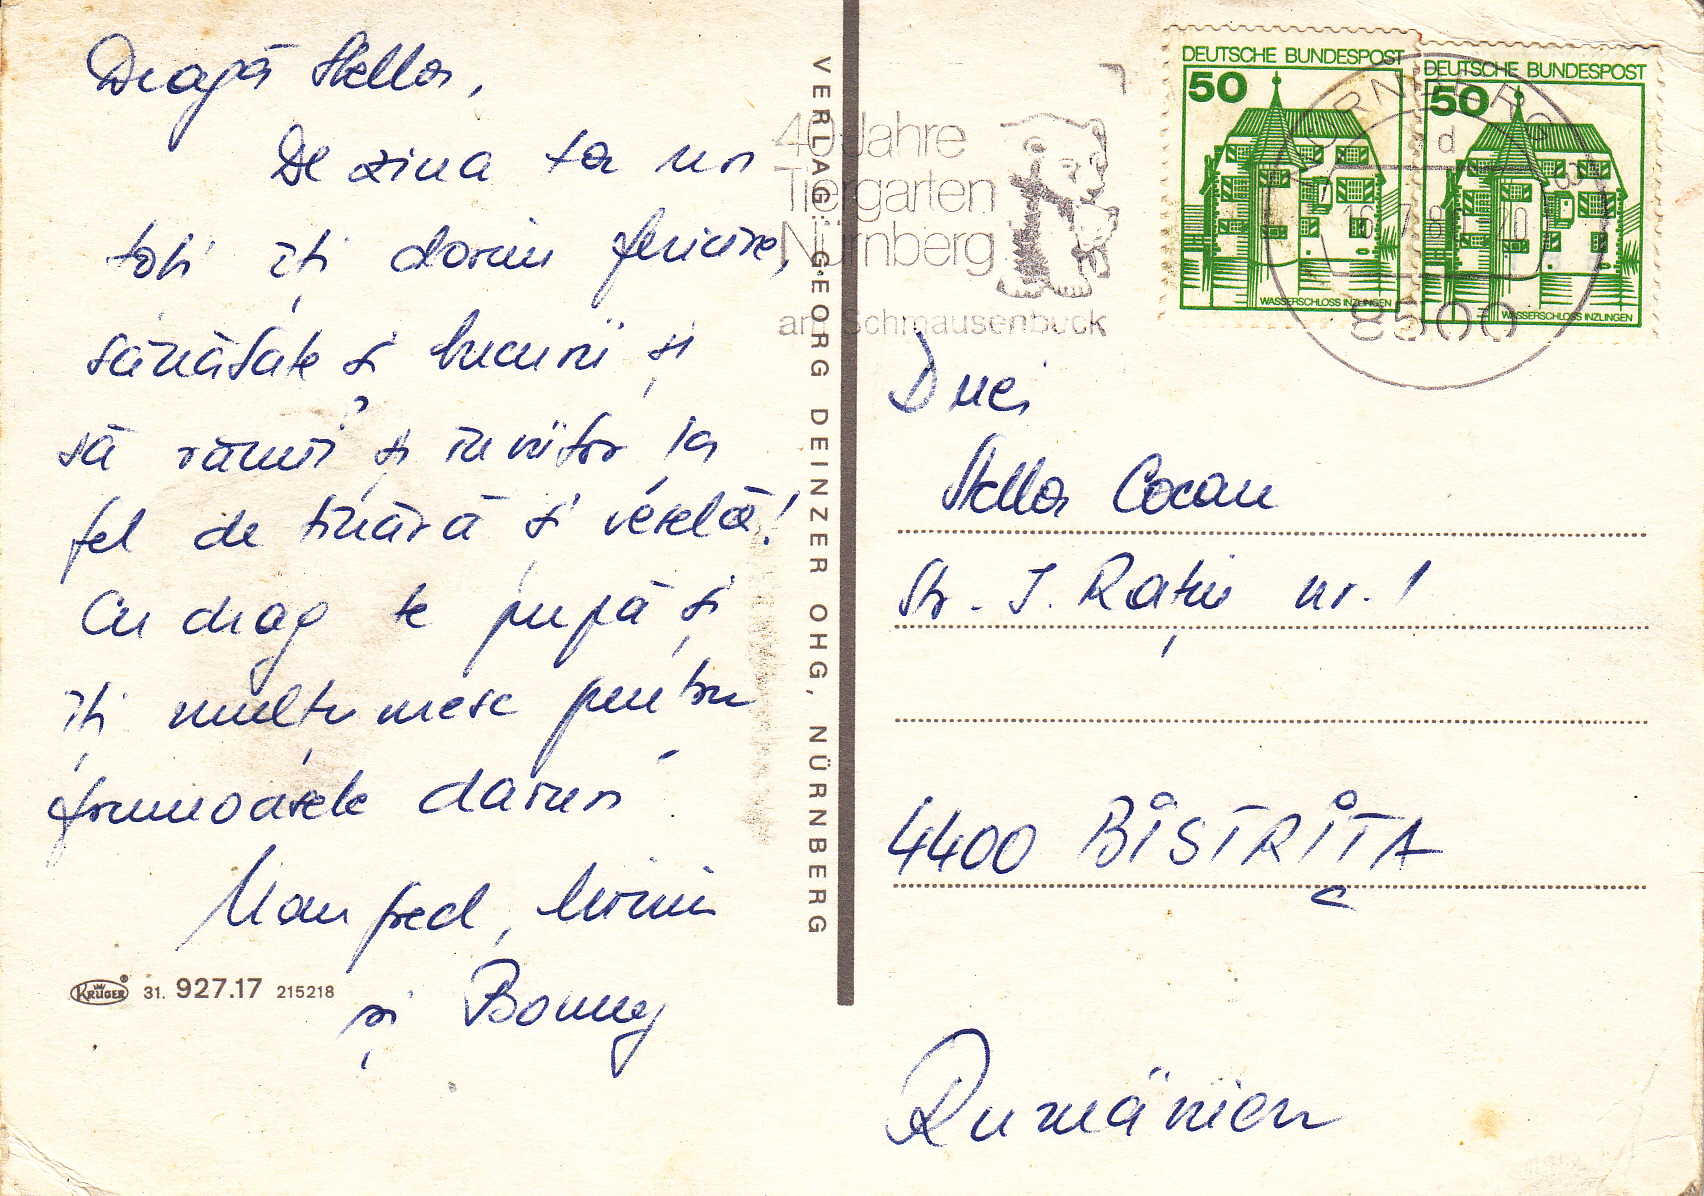 Dragă Stella,
De ziua ta noi
toți îți dorim fericire,
sănătate și bucurii și
să rămîi și în viitor la
fel de tînără și veselă!
Cu drag te pupă și
îți mulțumesc pentru
frumoasele daruri
Manfred,
și Bonny
KRÜGER® 31. 927.17 215218
VERLAG: GEORG DEINZER OHG, NÜRNBERG
40 Jahre
Tiergarten
Nürnberg
am Schmausenbuck
DEUTSCHE BUNDESPOST
50
WASSERSCHLOSS INZLINGEN
DEUTSCHE BUNDESPOST
50
WASSERSCHLOSS INZLINGEN
NÜRNBERG
d
8500
Dnei
Stella Cocan
Str. I. Rațiu nr. 1
4400 BISTRIȚA
Rumänien